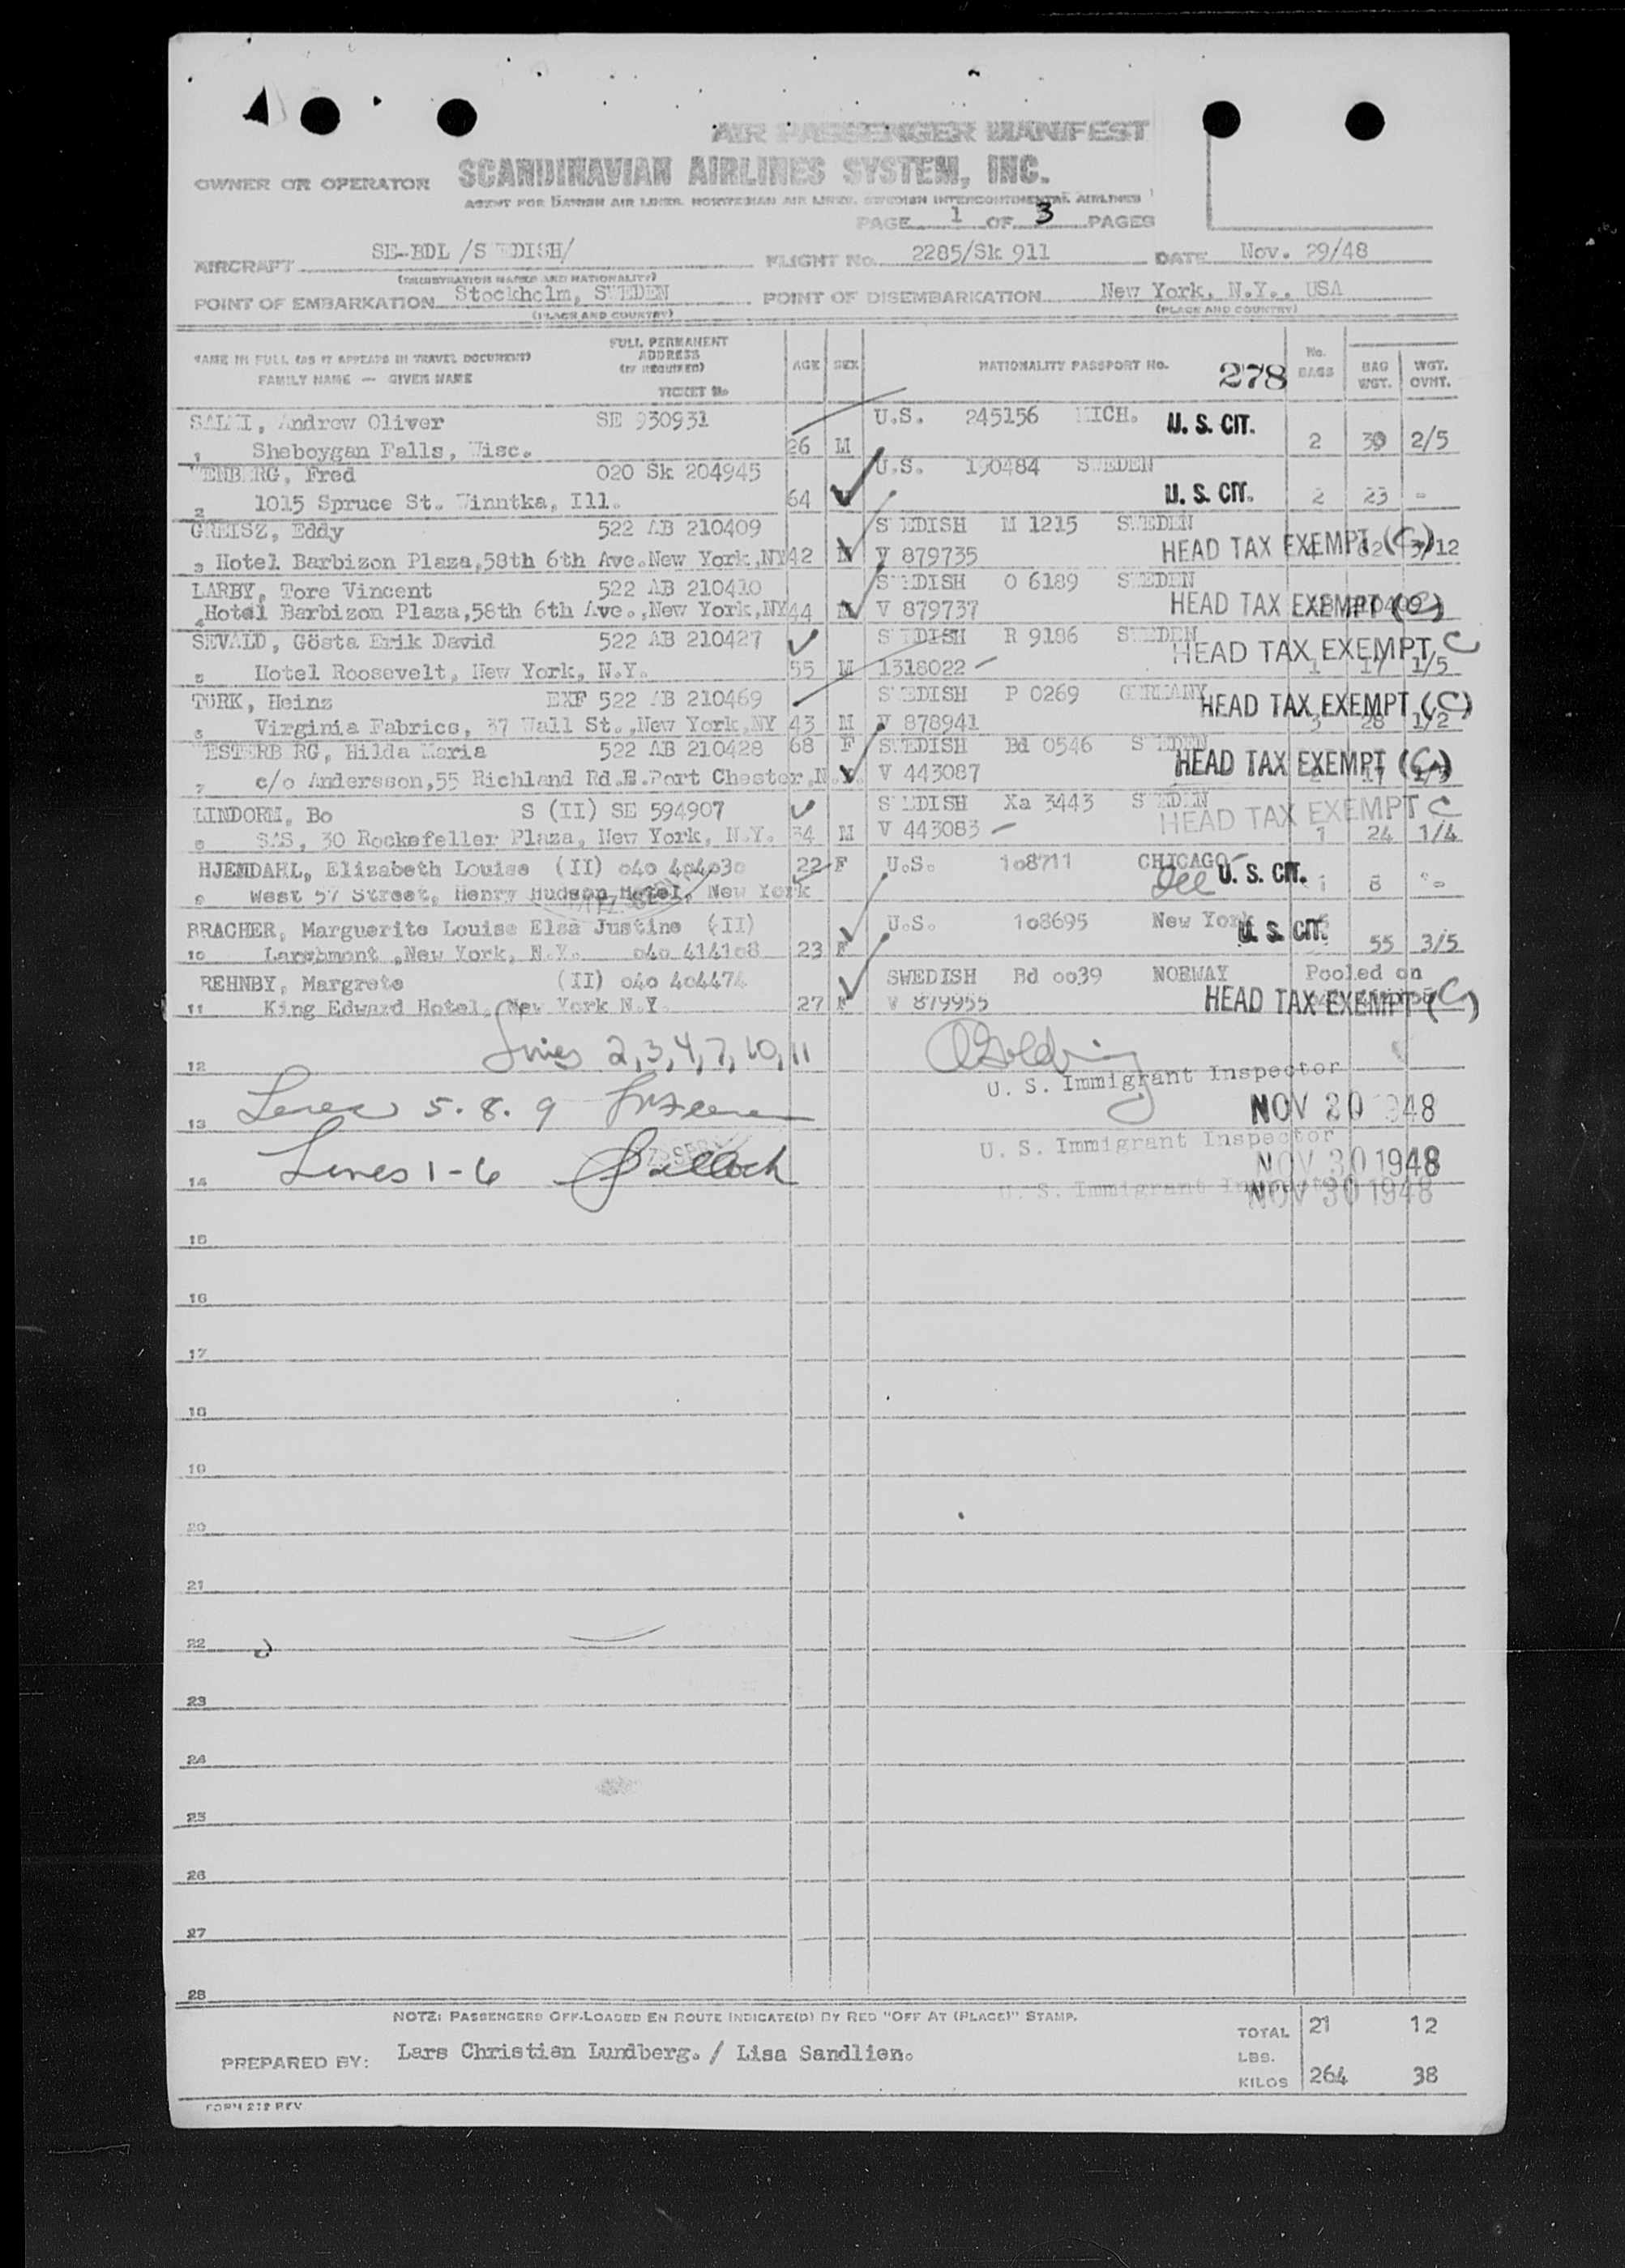 AIR PASSENGER MANIFEST
OWNER OR OPERATOR SCANDINAVIAN AIRLINES SYSTEM, INC.
AGENT FOR DANISH AIR LINES, NORWEGIAN AIR LINES, SWEDISH INTERCONTINENTAL AIRLINES
PAGE 1 OF 3 PAGES
AIRCRAFT SE-BDL /S EDISH/ FLIGHT No. 2285/Sk 911 DATE Nov. 29/48
(REGISTRATION MARKS AND NATIONALITY)
POINT OF EMBARKATION Stockholm, SWEDEN POINT OF DISEMBARKATION New York, N.Y., USA
(PLACE AND COUNTRY) (PLACE AND COUNTRY)
NAME IN FULL (AS IT APPEARS IN TRAVEL DOCUMENT) FAMILY NAME — GIVEN NAME
FULL PERMANENT ADDRESS (IF REQUIRED) TICKET No
AGE SEX NATIONALITY PASSPORT No. 278 No. BAGS BAG WGT. WGT. OVNT.
SALMI, Andrew Oliver SE 930931 U.S. 245156 MICH. U. S. CIT.
1 Sheboygan Falls, Wisc. 26 M 2 30 2/5
ENBERG, Fred 020 Sk 204945 U.S. 130484 SWEDEN
2 1015 Spruce St. Winntka, Ill. 64 U. S. CIT. 2 23 -
GREISZ, Eddy 522 AB 210409 S EDISH M 1215 SWEDEN
3 Hotel Barbizon Plaza,58th 6th Ave.New York,NY 42 M V 879735 HEAD TAX EXEMPT (C) 62 3/12
LARBY, Tore Vincent 522 AB 210410 S EDISH O 6189 S EDEN
4 Hotel Barbizon Plaza,58th 6th Ave.,New York,NY 44 M V 879737 HEAD TAX EXEMPT (C)
SEVALD, Gösta Erik David 522 AB 210427 S EDISH R 9186 S EDEN
5 Hotel Roosevelt, New York, N.Y. 55 M 1318022 HEAD TAX EXEMPT C 1 17 1/5
TÜRK, Heinz EXF 522 AB 210469 S EDISH P 0269 GERMANY
6 Virginia Fabrics, 37 Wall St.,New York,NY 43 M V 878941 HEAD TAX EXEMPT (C) 3 28 1/2
ESTERB RG, Hilda Maria 522 AB 210428 68 F SWEDISH Bd 0546 S EDEN
7 c/o Andersson,55 Richland Rd.E.Port Chester,N.Y. V 443087 HEAD TAX EXEMPT (C) 17
LINDORM, Bo S (II) SE 594907 S EDISH Xa 3443 S EDEN
8 SAS, 30 Rockefeller Plaza, New York, N.Y. 34 M V 443083 HEAD TAX EXEMPT C 1 24 1/4
HJENDAHL, Elizabeth Louise (II) 040 404030 22 F U.S. 108711 CHICAGO
9 West 57 Street, Henry Hudson Hotel, New York Ill U. S. CIT. 1 8 -
BRACHER, Marguerite Louise Elsa Justine (II) U.S. 108695 New York
10 Larchmont ,New York, N.Y. 040 414108 23 F U. S. CIT. 55 3/5
REHNBY, Margrete (II) 040 404474 SWEDISH Bd 0039 NORWAY Pooled on
11 King Edward Hotel, New York N.Y. 27 F V 879955 HEAD TAX EXEMPT (C)
12 Lines 2,3,4,7,10,11
U. S. Immigrant Inspector
13 Lines 5. 8. 9 NOV 30 1948
U. S. Immigrant Inspector
14 Lines 1-6 NOV 30 1948
U. S. Immigrant Inspector NOV 30 1948
15
16
17
18
19
20
21
22
23
24
25
26
27
28
NOTE: PASSENGERS OFF-LOADED EN ROUTE INDICATE(D) BY RED "OFF AT (PLACE)" STAMP.
PREPARED BY: Lars Christian Lundberg. / Lisa Sandlien.
TOTAL 21 12
LBS.
KILOS 264 38
FORM 212 REV